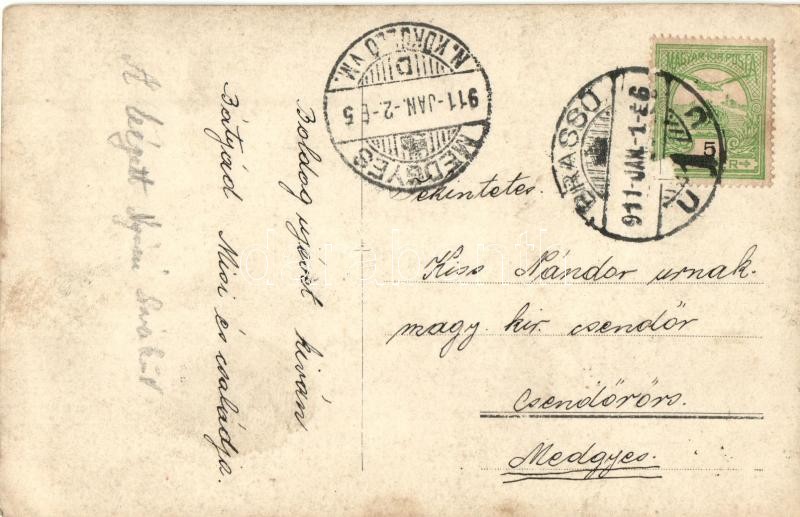 MAGYAR KIR. POSTA
5
BRASSÓ
911-JAN.-1.-É6
N. KÜKÜLLŐ VM.
D
911-JAN.-2.-É 5
MEDGYES
Tekintetes.
Kiss Nándor urnak.
magy. kir. csendőr
Csendőrörs.
Medgyes.
Boldog ujévet kiván
Bátyád Mici és családja.
A leégett